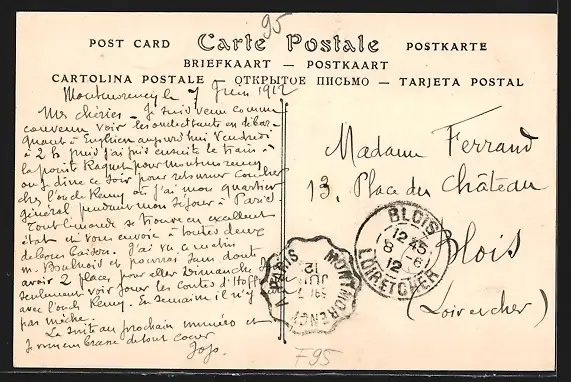 95
POST CARD Carte Postale POSTKARTE
BRIEFKAART — POSTKAART
CARTOLINA POSTALE — ОТКРЫТОЕ ПИСЬМО — TARJETA POSTAL
Montmorency le 7 Juin 1912
Mes chéries - Je suis venu comme
convenu voir les
à Enghien aujourd'hui Vendredi
à 2 h puis j'ai pris ensuite le train à
la pointe Raquet pour Montmorency
où je dîne ce soir pour retourner coucher
chez l'oncle Remy où j'ai mon quartier
général pendant mon séjour à Paris
Tout le monde se trouve en excellent
état et vous envoie à toutes deux
de bons baisers. J'ai vu ce matin
m. et pourrai sans doute
avoir 2 places pour aller Dimanche
seulement voir jouer les Contes d'Hoff
avec l'oncle Remy. En semaine il n'y
pas mèche.
La suite au prochain numéro et
je vous embrasse de tout coeur
Jojo.
Madame Ferrand
13, Place du Château
Blois
(Loir et cher)
BLOIS
12 45
8 -6
12
LOIR ET CHER
A PARIS
MONTMORENCY
7 JUIN
12
F95